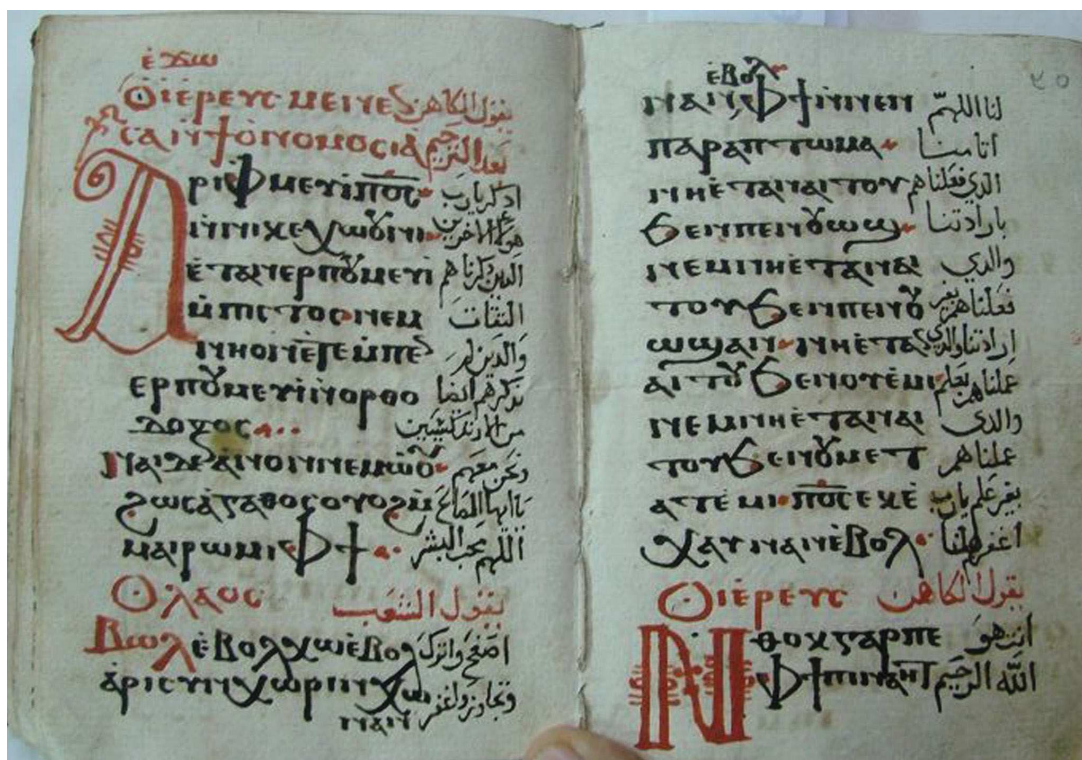 ⲉ̀ϫⲱ
Ⲟⲓⲉ̀ⲣⲉⲩⲥ ⲙⲉⲛⲉⲛ يقول الكاهن
ⲥⲁ ⲛ̀ϯⲟⲛⲟⲙⲟⲥⲓⲁ̀ بعد الترحيم
Ⲁⲣⲓⲫⲙⲉⲩⲓ̀ ⲡ̅ⲟ̅ⲥ̅ اذكر يارب
ⲛ̀ⲛⲓⲕⲉⲭⲱⲟⲩⲛⲓ هولاء الاخرين
ⲉ̀ⲧⲁⲛⲉⲣⲡⲟⲩⲙⲉⲩⲓ الذين ذكرناهم
ⲙ̀ⲡⲓⲥⲧⲟⲥ ⲛⲉⲙ الثقات
ⲛⲏ ⲟⲛ ⲉ̀ⲧⲉ ⲙ̀ⲡⲉ والذين لم
ⲉⲣⲡⲟⲩⲙⲉⲩⲓ̀ ⲛ̀ⲟⲣⲑⲟ نذكرهم ايضا
ⲇⲟⲝⲟⲥ
ⲛⲁⲓ ⲇⲉ ⲁ̀ⲛⲟⲛ ⲛⲉⲙⲱⲟⲩ ونحن معهم
ϩⲱⲥ ⲁ̀ⲅⲁⲑⲟⲥ ⲟⲩⲟϩ ⲙ̀ يا ايها الصالح
ⲙⲁⲓⲣⲱⲙⲓ ⲫϯ اللهم محب البشر
Ⲟⲗⲁⲟⲥ يقول الشعب
Ⲃⲱⲗ ⲉ̀ⲃⲟⲗ ⲭⲱ ⲉ̀ⲃⲟⲗ اصفح واترك
ⲁ̀ⲣⲓⲥⲩⲛⲭⲱⲣⲓⲛ ⲭⲱ وتجاوز واغفر
ⲛⲁⲛ
ⲉ̀ⲃⲟⲗ
ⲛⲁⲛ ⲫϯ ⲛ̀ⲛⲉⲛ لنا اللهم
ⲡⲁⲣⲁⲡⲧⲱⲙⲁ اثامنا
ⲛⲏ ⲉ̀ⲧⲁⲛⲁⲓⲧⲟⲩ الذي فعلناهم
ϧⲉⲛ ⲡⲉⲛⲟⲩⲱϣ بارادتنا
ⲛⲉⲙ ⲛⲏ ⲉ̀ⲧⲁⲛⲁⲓ والذي
ⲧⲟⲩ ϧⲉⲛ ⲡⲉⲛⲟⲩ فعلناهم بغير
ⲱϣ ⲁⲛ ⲛⲏ ⲉ̀ⲧⲁⲛ ارادتنا والذي
ⲁⲓⲧⲟⲩ ϧⲉⲛ ⲟⲩⲉ̀ⲙⲓ عملناهم بعلم
ⲛⲉⲙ ⲛⲏ ⲉ̀ⲧⲁⲛⲁⲓ والذي
ⲧⲟⲩ ϧⲉⲛ ⲟⲩⲙⲉⲧ عملناهم
ⲁⲧⲉ̀ⲙⲓ ⲡ̅ⲟ̅ⲥ̅ ⲉⲕⲉ̀ بغير علم يارب
ⲭⲁⲩ ⲛⲁⲛ ⲉ̀ⲃⲟⲗ اغفرهم لنا
Ⲟⲓⲉ̀ⲣⲉⲩⲥ يقول الكاهن
Ⲛⲑⲟⲕ ⲅⲁⲣ ⲡⲉ انت هو
ⲫϯ ⲡⲓⲛⲁⲏⲧ الله الرحيم